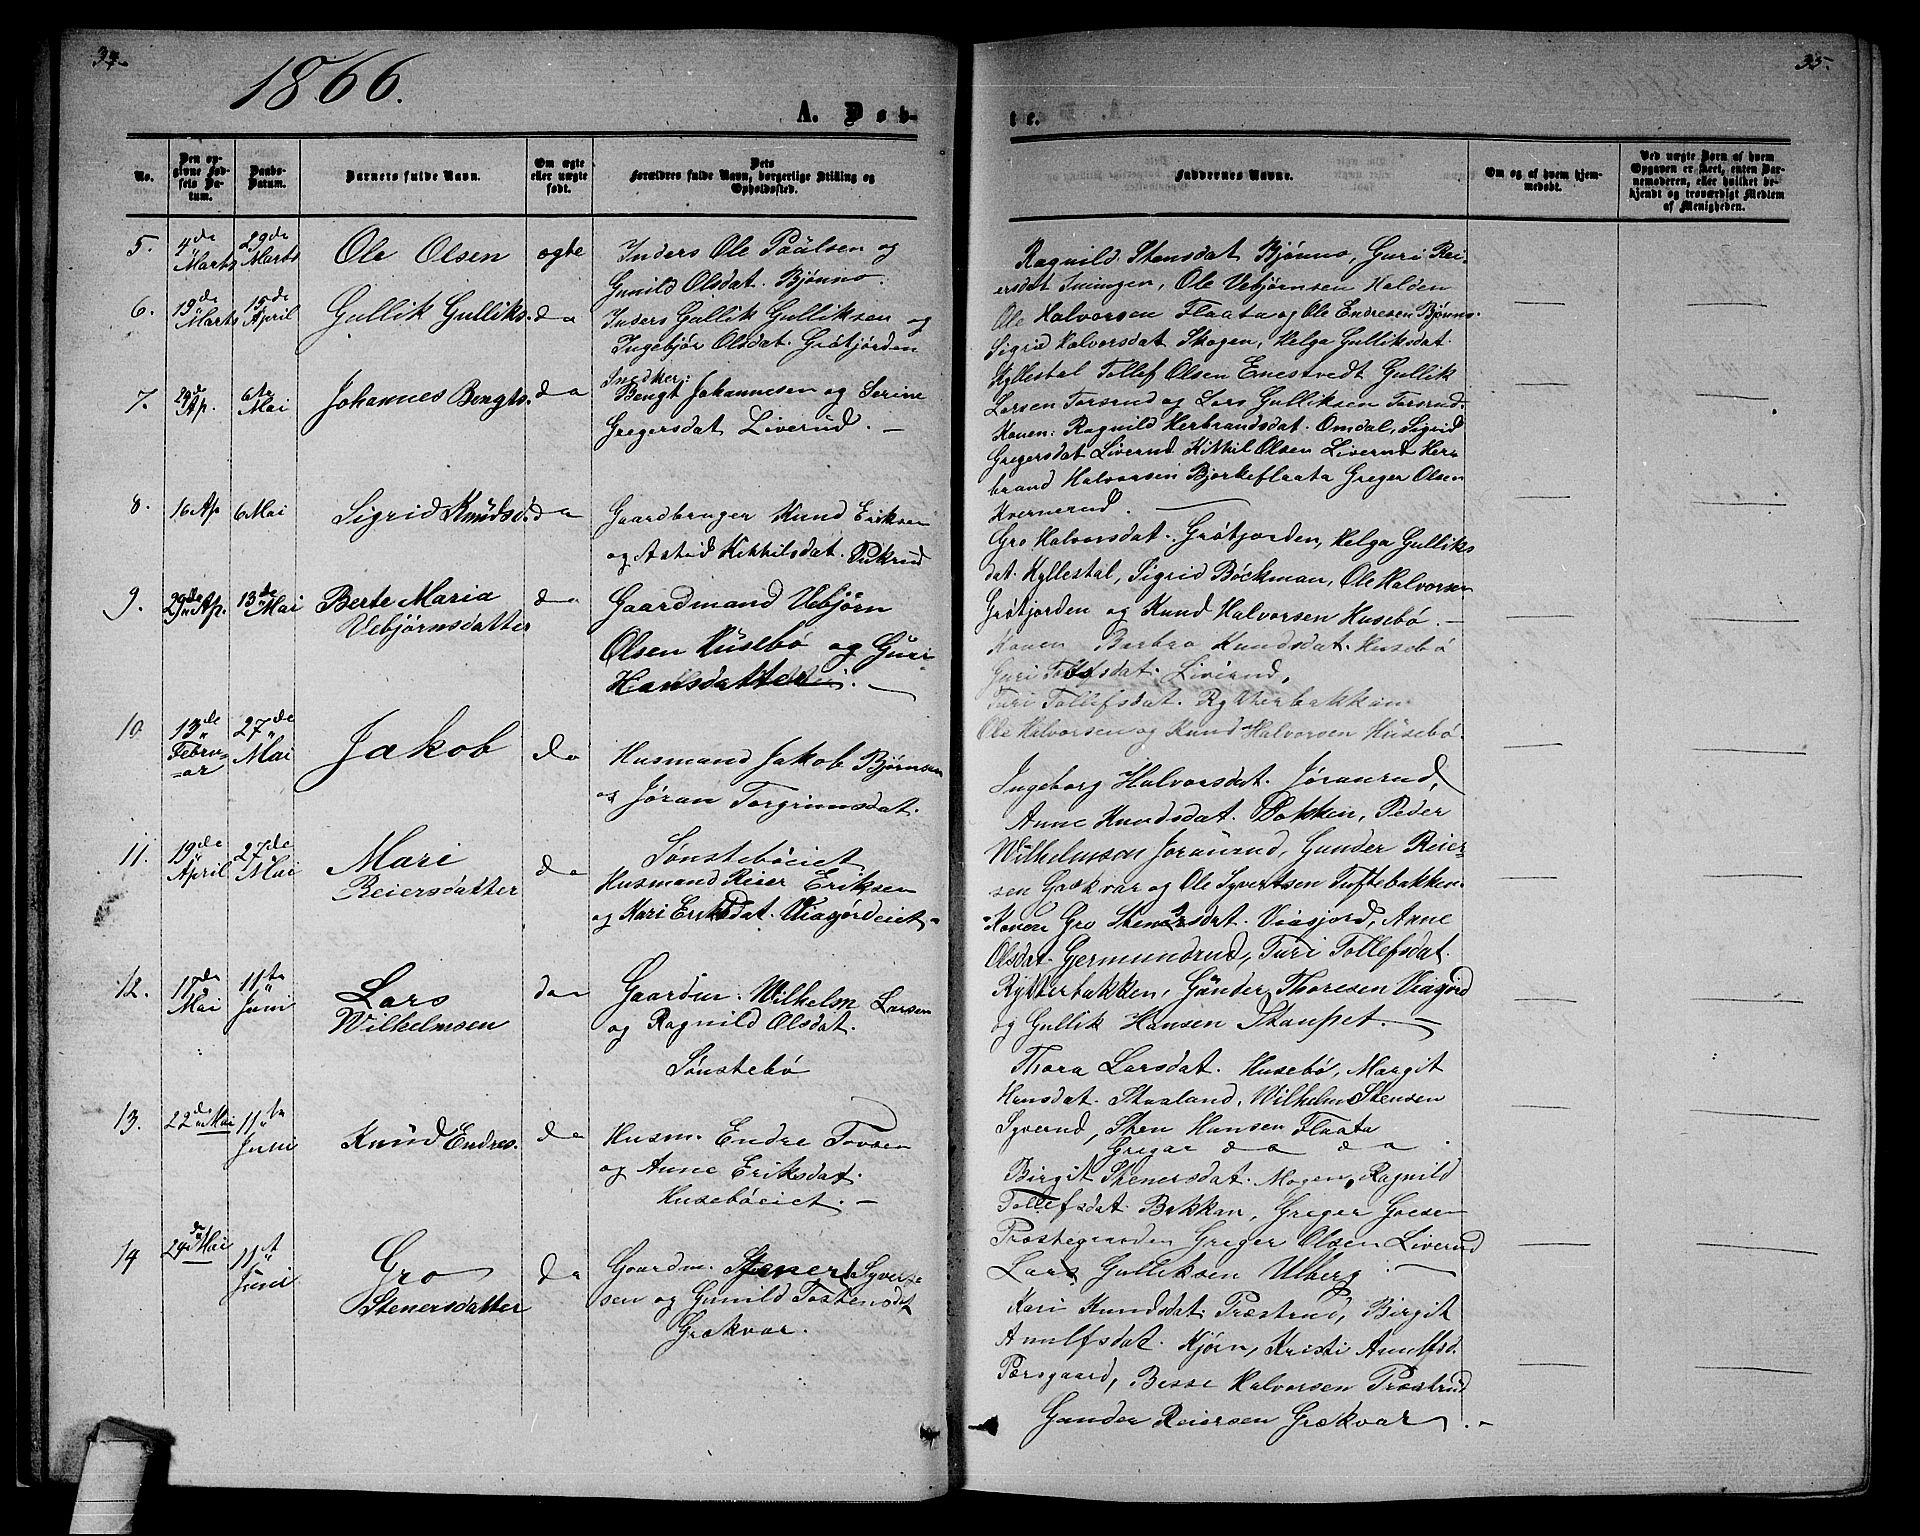 34.
1866.
A. Døb-
No.
Den opgivne Fødsels Datum.
Daabs-Datum.
Barnets fulde Navn.
Om ægte eller uægte født.
Dets Forældres fulde Navn, borgerlige Stilling og Opholdssted.
5. 4de Marts 29de Marts Ole Olsen ogte Inders Ole Paälsen og
Gunild Olsdat. Bjønno.
6. 19de Marts 15de April Gullik Gulliks. da Inders Gullik Gulliksen og
Ingebjør Olsdat. Grótjorden
7. 29de Ap. 6te Mai Johannes Bengts. da Snedker:
Bengt Johannesen og Serine
Gregersdat Liverud. —
8. 16 Ap. 6 Mai Sigrid Knüdsd. da Gaardbruger Knud Eriksen
og Astrid Kittilsdat.
9. 29de Ap. 13de Mai Berte Maria da Gaardmand Vebjørn
Vebjørnsdatter Olsen Hüsebó og Guri
Hansdatter. —
10 13de Februar 27de Mai Jakob da Husmand Jakob Bjørnsen
og Jøran Torgrimsdat.
Sónstebóeiet
11. 19de April 27de Mai Mari da Husmand Reier Eriksen
Reiersdatter og Kari Eriksdat. Viagjordeiet -
12. 17de Mai 11te Juni Lars da Gaardm. Wilhelm Larsen
Wilhelmsen og Ragnild Olsdat.
Sónstebó
13. 22de Mai 11te Juni Knüd Endres. da Husm. Endre Tovsen
og Anne Eriksdat.
Husebóeiet. —
14 29de Mai 11te Juni Gro da Gaardm. Stener Syver-
Stenersdatter sen og Gunild Tostensdat
Grækvar.
35.
te.
Faddernes Navne.
Om og af hvem hjemmedøbt.
Ved uægte Børn af hvem Opgaven er skeet, enten Barnemoderen, eller hvilket bekjendt og troværdigt Medlem af Menigheden.
Ragnild Stensdat Bjønno, Guri Rei-
ersdat Iningen, Ole Vebjørnsen Halden
Ole Halvorsen Flaata og Ole Endresen Bjønno.
Sigrid Halvorsdat Skogen, Helga Gulliksdat.
Kyllestal Tollef Olsen Enestvedt Gullik
Larsen Torsrud og Lars Gulliksen Torsrud.
Konen: Ragnild Herbrandsdat. Omdal, Sigrid
Gregersdat Liverud Kittil Olsen Liverud Her-
brand Halvorsen Bjorkeflaata Greger Olsen
Kvernerud.
Gro Halvorsdat. Grótjorden, Helga Gulliks
dat. Kyllestal, Sigrid Bóckman, Ole Halvorsen
Grótjorden og Knud Halvorsen Husebó. —
Konen Barbro Knudsdat. Husebó
Guri Tolfsdat. Liverud,
Turi Tollefsdat. Rytterbakken
Ole Halvorsen og Knud Halvorsen Hüsebó.
Ingeborg Halvorsdat. Jóranrud,
Anne Knudsdat. Bakken, Peder
Wilhelmson Joranrud, Gunder Reier-
sen Grækvar og Ole Syvertsen Tuftebakken.
Konen Gro Stenersdat. Viagjord, Anne
Olsdat. Gjermundrud, Turi Tollefsdat.
Rytterbakken, Günder Thoresen Viagjord
og Gullik Hansen Staupet. —
Thora Larsdat. Husebó, Margit
Hansdat. Staaland, Wilhelm Stensen
Syverud, Sten Hansen Flaata
Gregar da da
Birgit Stenersdat. Mogen, Ragnild
Tollefsdat. Bakkan, Greger Joesen
Præstegaarden Greger Olsen Liverud
Lars Gulliksen Ulberg. —
Kari Knudsdat. Præstrud, Birgit
Anulfsdat. Kjørn, Kristi Anulfsd.
Pærsgaard, Besse Halvorsen Præstrud
Gunder Reiersen Grækvar. —